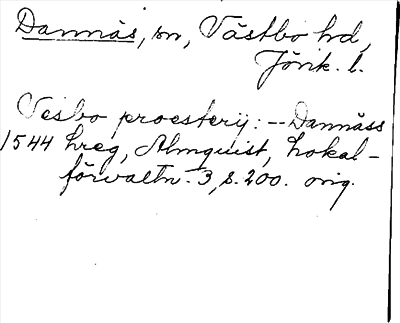 Dannäs, sn, Västbo hd,
Jönk. l.
Vesbo proesterij: -- Dannäss
1544 hreg, Almquist, Lokal-
förvaltn. 3, s. 200. orig.